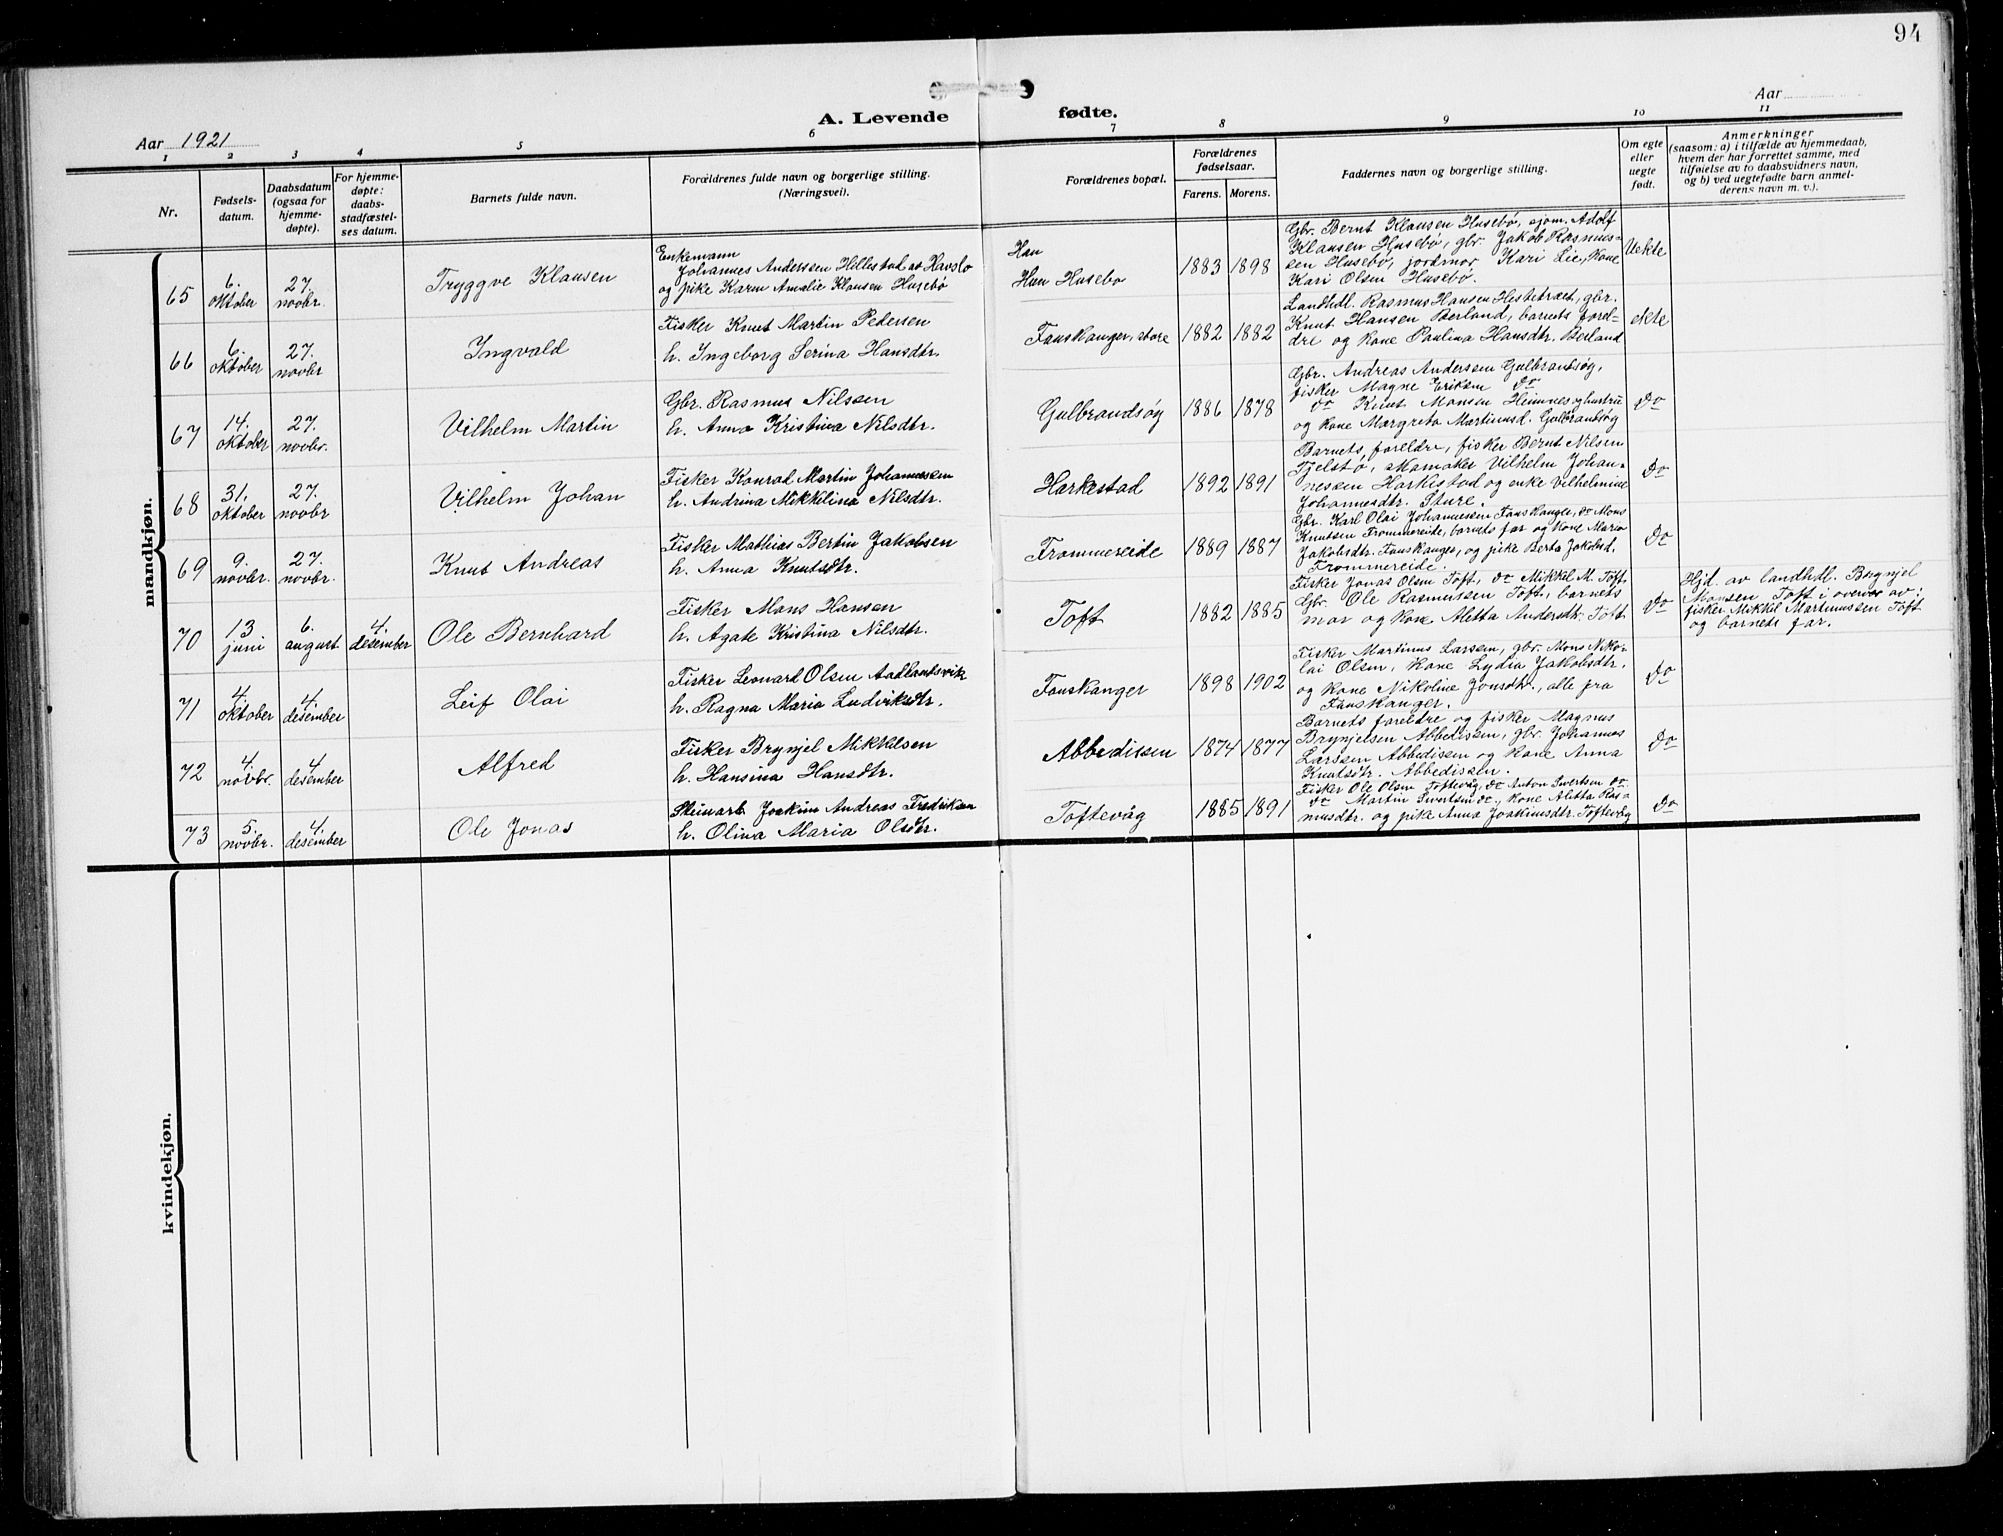 94
A. Levende fødte.
Aar 1921
Aar
1 2 3 4 5 6 7 8 9 10 11
Nr.
Fødsels-
datum.
Daabsdatum
(ogsaa for
hjemme-
døpte).
For hjemme-
døpte:
daabs-
stadfæstel-
ses datum.
Barnets fulde navn.
Forældrenes fulde navn og borgerlige stilling.
(Næringsvei).
Forældrenes bopæl.
Forældrenes
fødselsaar.
Farens. Morens.
Faddernes navn og borgerlige stilling.
Om egte
eller
uegte
født.
Anmerkninger
(saasom: a) i tilfælde av hjemmedaab,
hvem der har forrettet samme, med
tilføielse av to daabsvidners navn,
og b) ved uegtefødte barn anmel-
derens navn m. v.).
mandkjøn.
65
6.
oktober
27.
novbr.
Tryggve Klausen
Enkemann
Johannes Anderssen Hillestad at Havslo
og pike Karen Amalie Klausen Husebö
Han
Hun Husebo
1883 1898
Gbr. Bernt Klausen Husebö, sjøm. Adolf
Klausen Husebö, gbr. Jakob Rasmus-
sen Husebö, jordmor Kari Lie, kone
Kari Olsen Husebö.
Uekte
66
6.
oktober
27.
novbr
Ingvald
Fisker Knut Martin Pedersen
h. Ingeborg Serina Hansdtr.
Fauskanger, store
1882 1882
Landhdl. Rasmus Hansen Hestetræet, gbr.
Knut Hansen Berland, barnets forel-
dre og kone Paulina Hansdtr. Berland
ekte
67
14.
oktober
27.
novbr.
Vilhelm Martin
Gbr. Rasmus Nilsen
h. Anna Kristina Nilsdtr.
Gulbrandsøg
1886 1878
Gbr. Andreas Andersen Gulbrantsøg,
fisker Magne Eriksen do
do Knut Monsen Heimnes, ghustru
og kone Margreta Martinusd. Gulbrantsøg
do
68
31.
oktober
27.
novbr
Vilhelm Johan
Fisker Konrad Martin Johannesen
h. Andrina Mikkelina Nilsdtr.
Harkestad
1892 1891
Barnets foreldre, fisker Bernt Nilsen
Tjelstø, Vilhelm Johan-
nessen Harkestad og enke Vilhelmine
Johannesdtr. Sture.
do
69
9.
novbr.
27.
novbr.
Knut Andreas
Fisker Mathias Bertin Jakobsen
h. Anna Knutsdtr.
Frommereide
1889 1887
Gbr. Karl Olai Johannessen Fauskanger, do Mons
Knutsen Frommereide, barnets far og kone Maria
Jakobsdtr. Fauskanger, og pike Berta Jakobsd.
Frommereide.
do
70
13
juni
6.
august
4.
desember
Ole Bernhard
Fisker Mons Hansen
h. Agate Kristina Nilsdtr.
Toft
1882 1885
Fisker Jonas Olsen Toft, do Mikkel M. Toft
Gbr. Ole Rasmussen Toft, barnets
mor og kone Aletta Andersdtr. Toft
do
Hjd. av landhdl. Brynjel
Monsen Toft i overvær av:
fisker Mikkel Martinussen Toft
og barnets far.
71
4
oktober
4.
desember
Leif Olai
Fisker Leonard Olsen Aadlandsvik
h. Ragna Maria Ludviksdtr.
Fauskanger
1898 1902
Fisker Martinus Larsen, gbr. Mons Niko-
lai Olsen, kone Lydia Jakobsdtr.
og kone Nikoline Jonsdtr., alle fra
Fauskanger.
do
72
4.
novbr.
4.
desember
Alfred
Fisker Brynjel Mikkelsen
h. Hansina Hansdtr.
Abbedissen
1874 1877
Barnets foreldre og fisker Magnus
Brynjelsen Abbedissen, gbr. Johannes
Larssen Abbedissen og kone Anna
Knutsdtr. Abbedissen.
do
73
5.
novbr.
4.
desember
Ole Jonas
Steinarb. Joakim Andreas Fredriksen
h. Olina Maria Olsdtr.
Toftevåg
1885 1891
Fisker Ole Olsen Toftevåg, do Anton Sivertsen do
do Martin Sivertsen do, kone Aletta Ras-
musdtr. og pike Anna Joakimsdtr. Toftevåg
do
kvindekjøn.